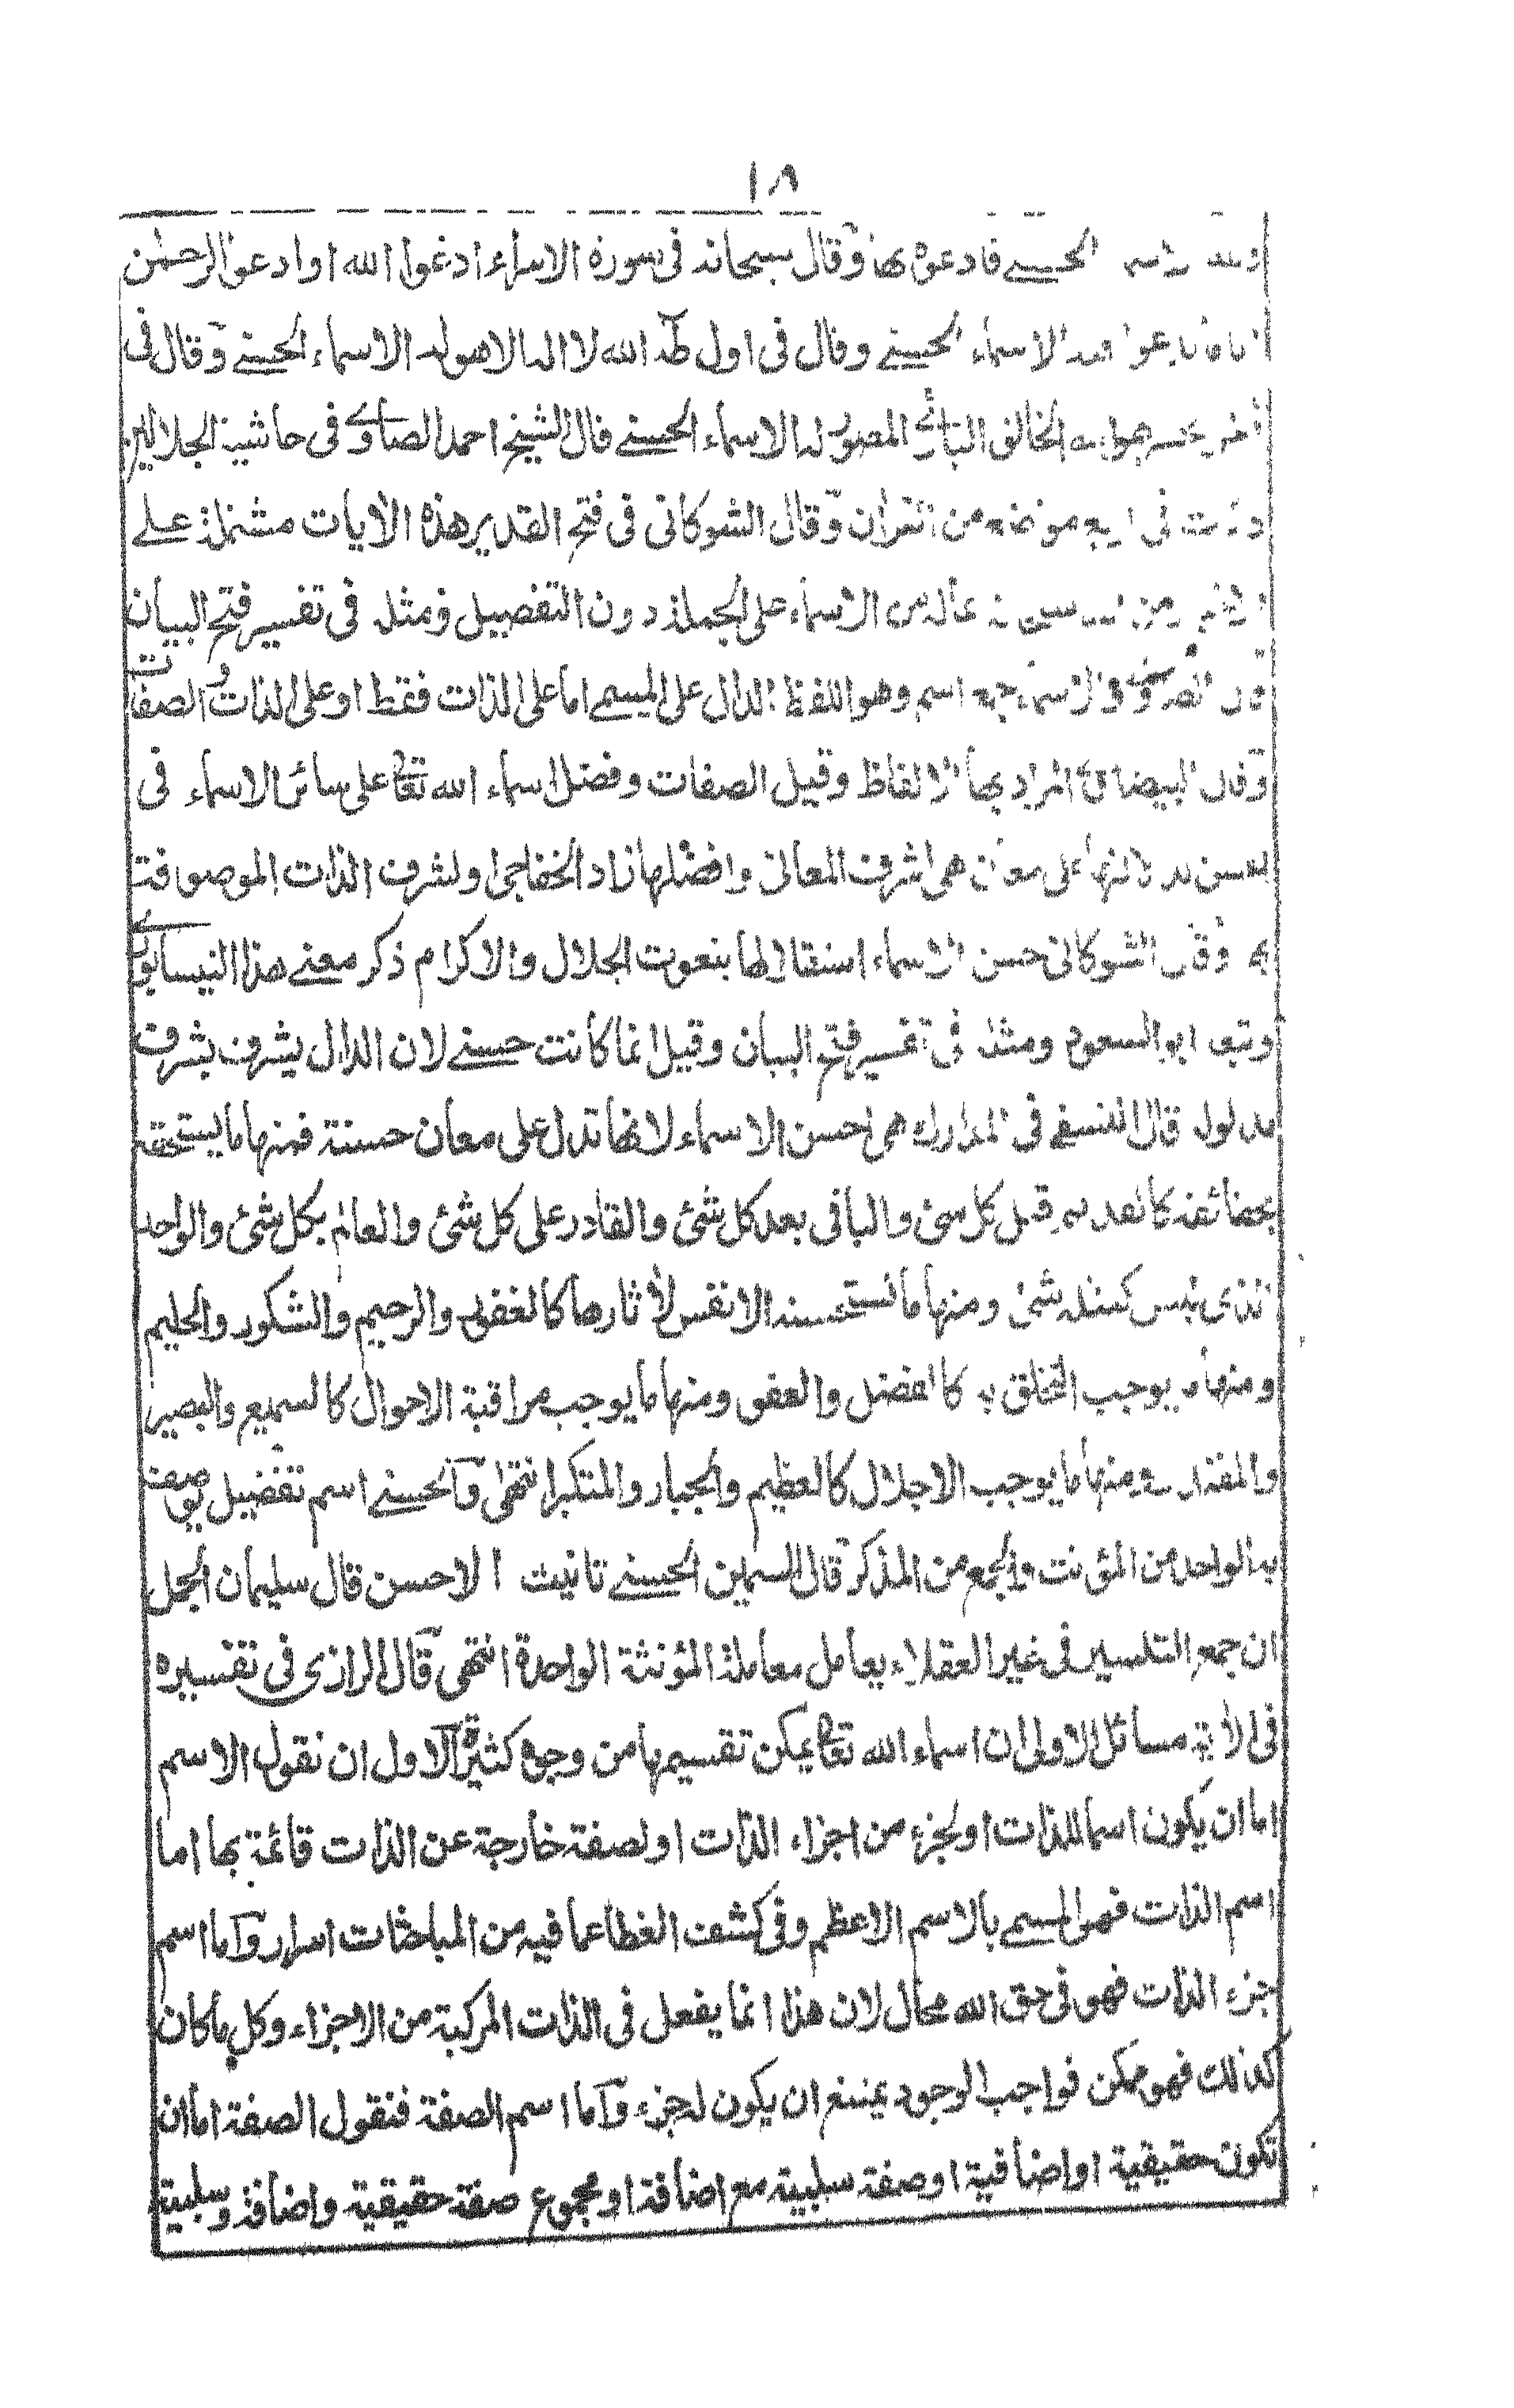 ١٨
ولله الاسماء الحسنے فادعوه بها وقال سبحانه فى سورة الاسراء ادعوا الله او ادعوا الرحمٰن
ايا ما تدعوا فله الاسماء الحسنے وقال فى اول طٰه الله لا اله الا هو له الاسماء الحسنے وقال فى
هو الله الخالق البارئ المصور له الاسماء الحسنے قال الشيخ احمد الصاوے فى حاشية الجلالين
فى اربعة مواضع من القران وقال الشوكانى فى فتح القدير هذه الايات مشتملة علے
من الاسماء على الجملة دون التفصيل ومثله فى تفسير فتح البيان
جمع اسم وهو اللفظ الدال على المسمے اما على الذات فقط او على الذات والصفات
وقال البيضاوى المراد بها الالفاظ وقيل الصفات وفضل اسماء الله تعا على سائر الاسماء فى
الحسن لدلالتها على معان هى اشرف المعانى وافضلها زاد الخفاجى ولشرف الذات الموصوفة
بها وقال الشوكانى حسن الاسماء استقلالها بنعوت الجلال والاكرام ذكر معنے هذا النيسابورے
وتبعه ابو السعود ومثله فى تفسير فتح البيان وقيل انما كانت حسنے لان الدال يشرف بشرف
مدلوله قال النسفے فى المدارك هى احسن الاسماء لانها تدل على معان حسنة فمنها ما يستحقه
بحقائقه كالقديم قبل كل شئ والباقى بعد كل شئ والقادر على كل شئ والعالم بكل شئ والواحد
الذى ليس كمثله شئ ومنها ما تستحسنه الانفس لأثارها كالغفور والرحيم والشكور والحليم
ومنها ما يوجب التخلق به كالفضل والعفو ومنها ما يوجب مراقبة الاحوال كالسميع والبصير
والمقتدر ومنها ما يوجب الاجلال كالعظيم والجبار والمتكبر انتهى والحسنے اسم تفضيل يوصف
به الواحد من المؤنث والجمع من المذكر قال السمين الحسنے تانيث الاحسن قال سليمان الجمل
ان جمع التكسير فى غير العقلاء يعامل معاملة المؤنثة الواحدة انتهى قال الرازى فى تفسيره
فى الأية مسائل الاولى ان اسماء الله تعا يمكن تقسيمها من وجوه كثيرة الاول ان نقول الاسم
اما ان يكون اسما للذات او لجزء من اجزاء الذات او لصفة خارجة عن الذات قائمة بها اما
اسم الذات فهو المسمے بالاسم الاعظم وفى كشف الغطا عما فيه من المباحثات اسرار واما اسم
جزء الذات فهو فى حق الله محال لان هذا انما يفعل فى الذات المركبة من الاجزاء وكل ما كان
كذلك فهو ممكن فواجب الوجود يمتنع ان يكون له جزء واما اسم الصفة فنقول الصفة اما ان
تكون حقيقية او اضافية او صفة سلبية مع اضافة او مجموع صفة حقيقية واضافة وسلبية